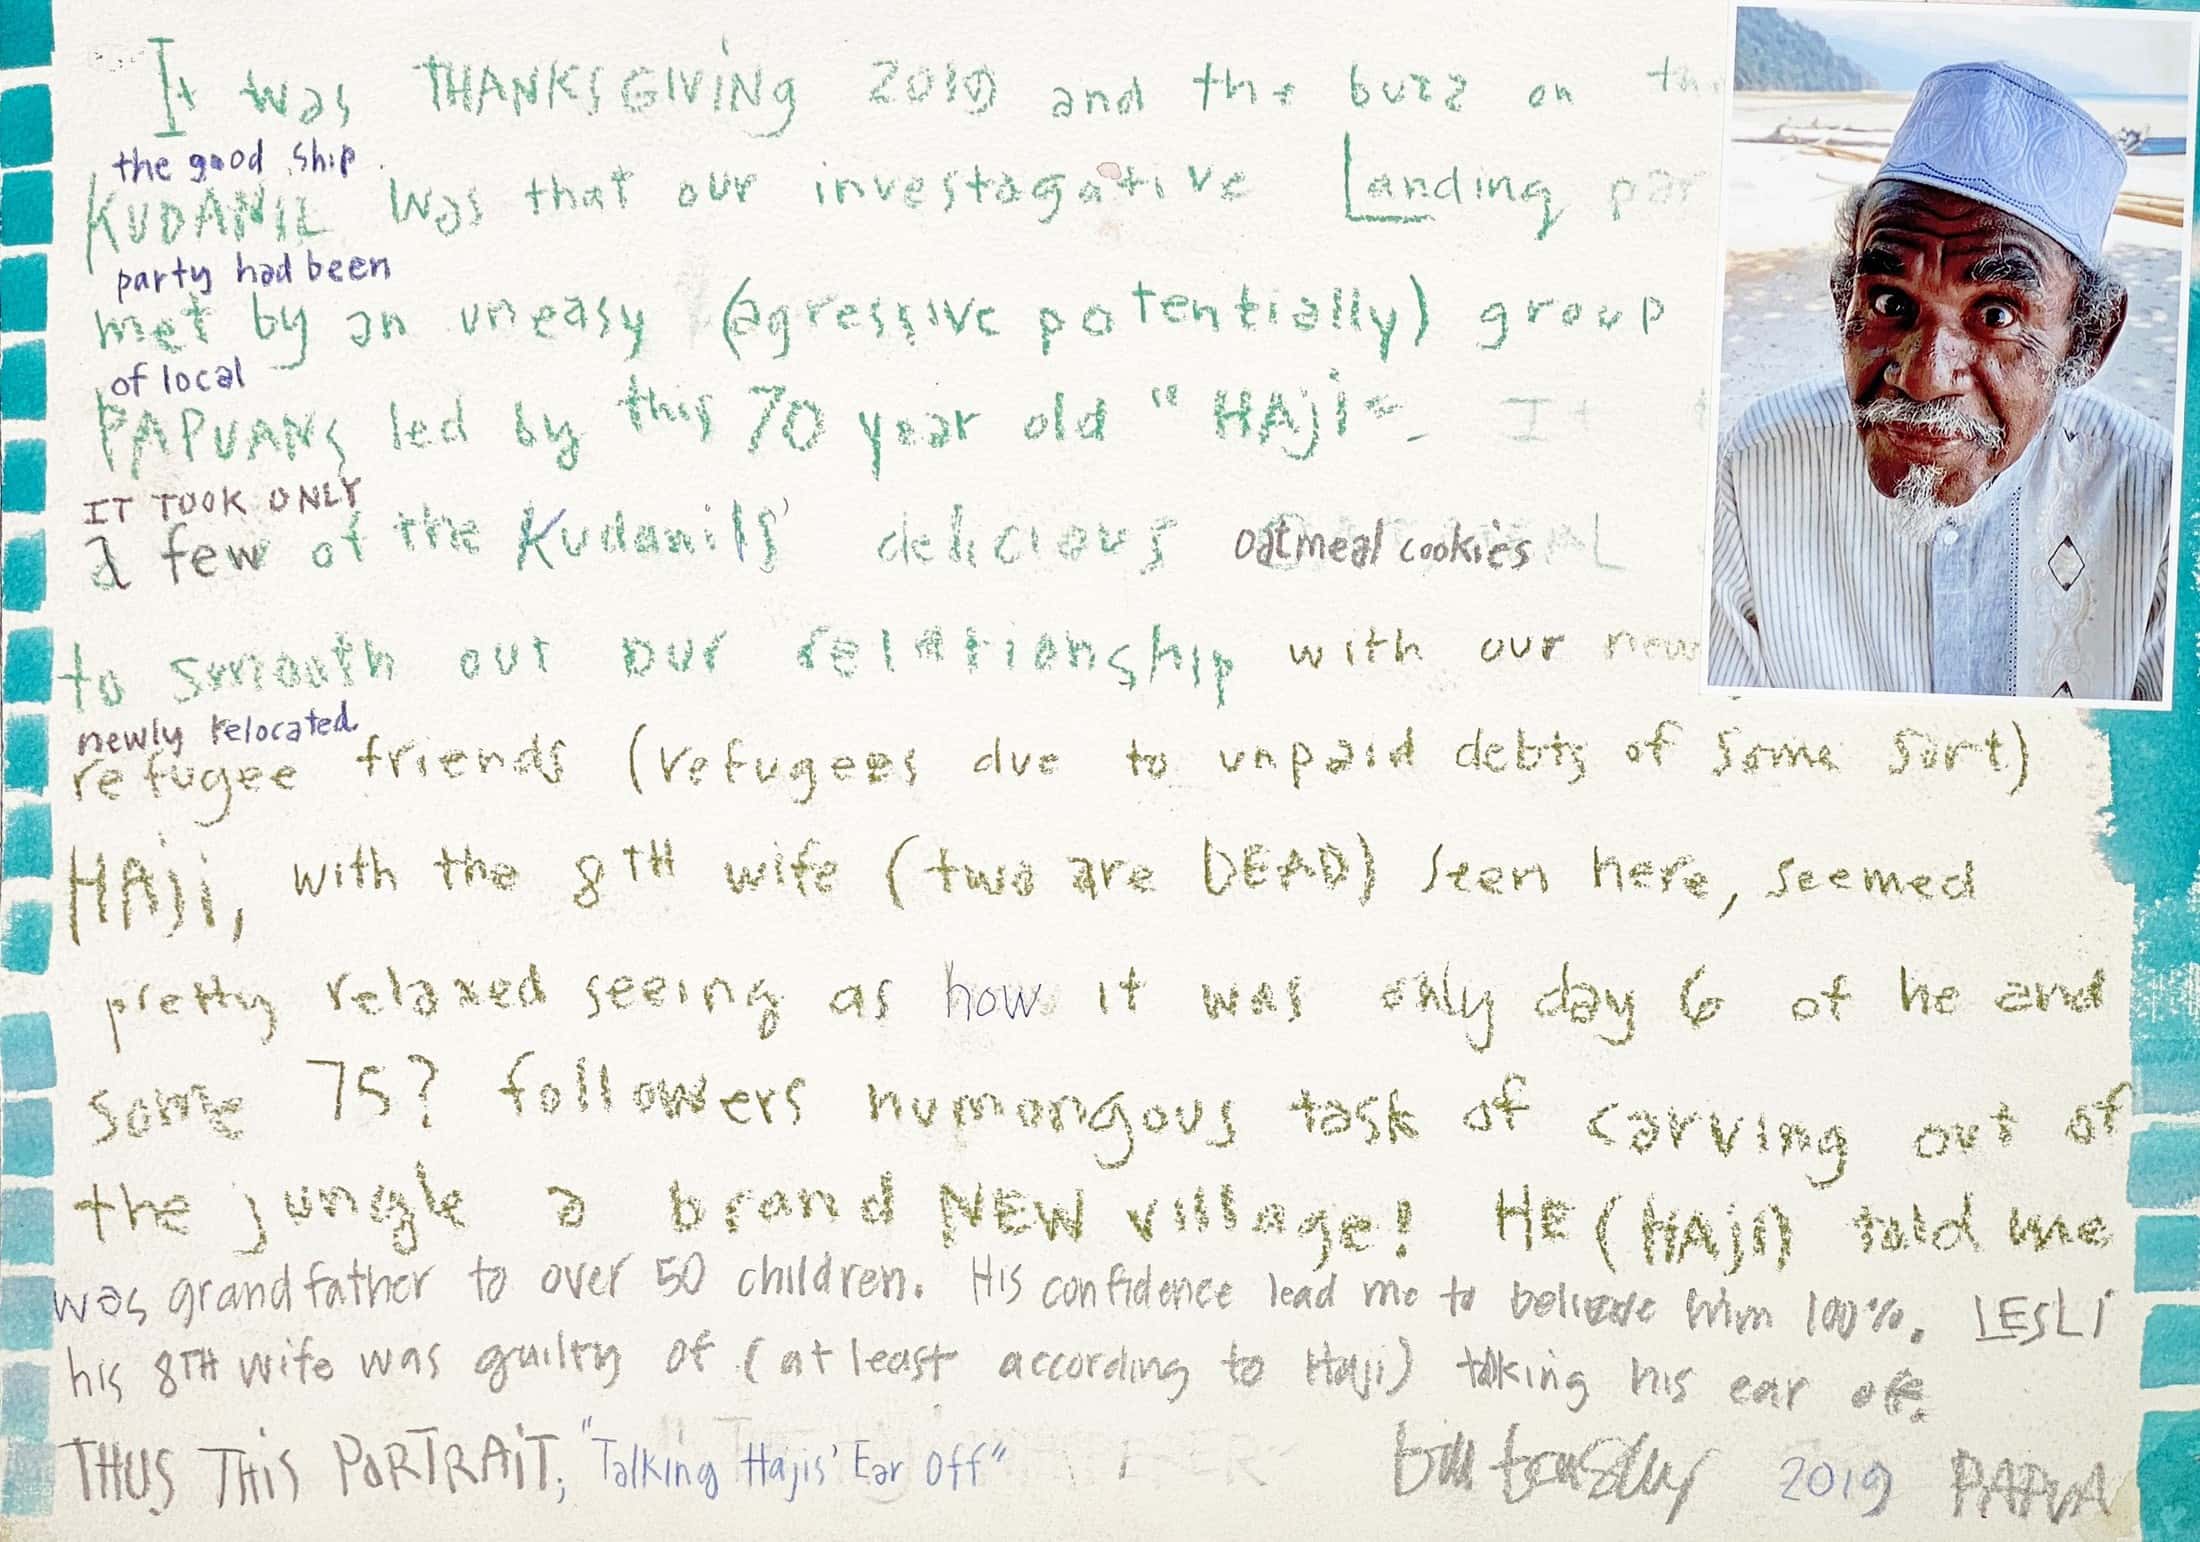 It was THANKSGIVING 2019 and the buzz on th
the good ship
KUDANIL was that our investagative Landing par
party had been
met by an uneasy (agressive potentially) group
of local
PAPUANS led by this 70 year old "HAji". It
IT TOOK ONLY
a few of the Kudanils' delicious oatmeal cookies
to smooth out our relationship with our new
newly relocated
refugee friends (refugees due to unpaid debts of some sort)
HAji, with the 8TH wife (two are DEAD) seen here, seemed
pretty relaxed seeing as how it was only day 6 of he and
some 75? followers humongous task of carving out of
the jungle a brand NEW village! HE (HAji) told me
was grandfather to over 50 children. His confidence lead me to believe him 100%. LESLi
his 8TH wife was guilty of (at least according to Haji) talking his ear off.
THUS THiS PORTRAiT; "Talking Hajis' Ear Off"
bill bensley 2019 PAPUA